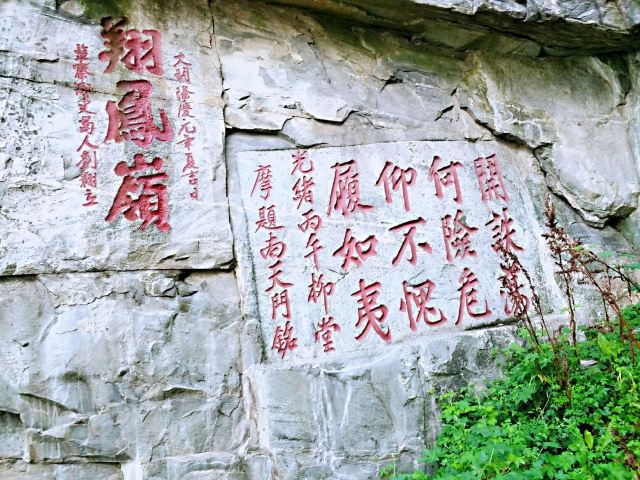 開詄蕩
何險危
仰不愧
履如夷
光緒丙午柳堂
摩題南天門銘
大明隆慶元年夏吉日
翔鳳嶺
察御史萬人劉立